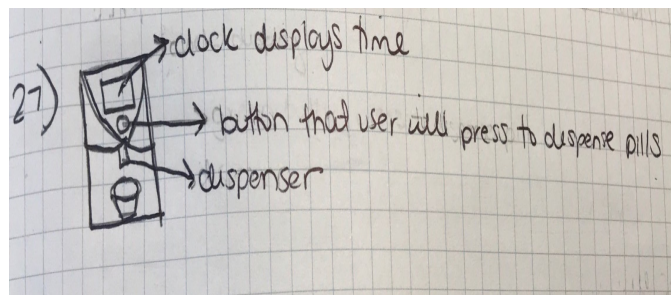 clock displays time
27)
button that user will press to dispense pills
dispenser